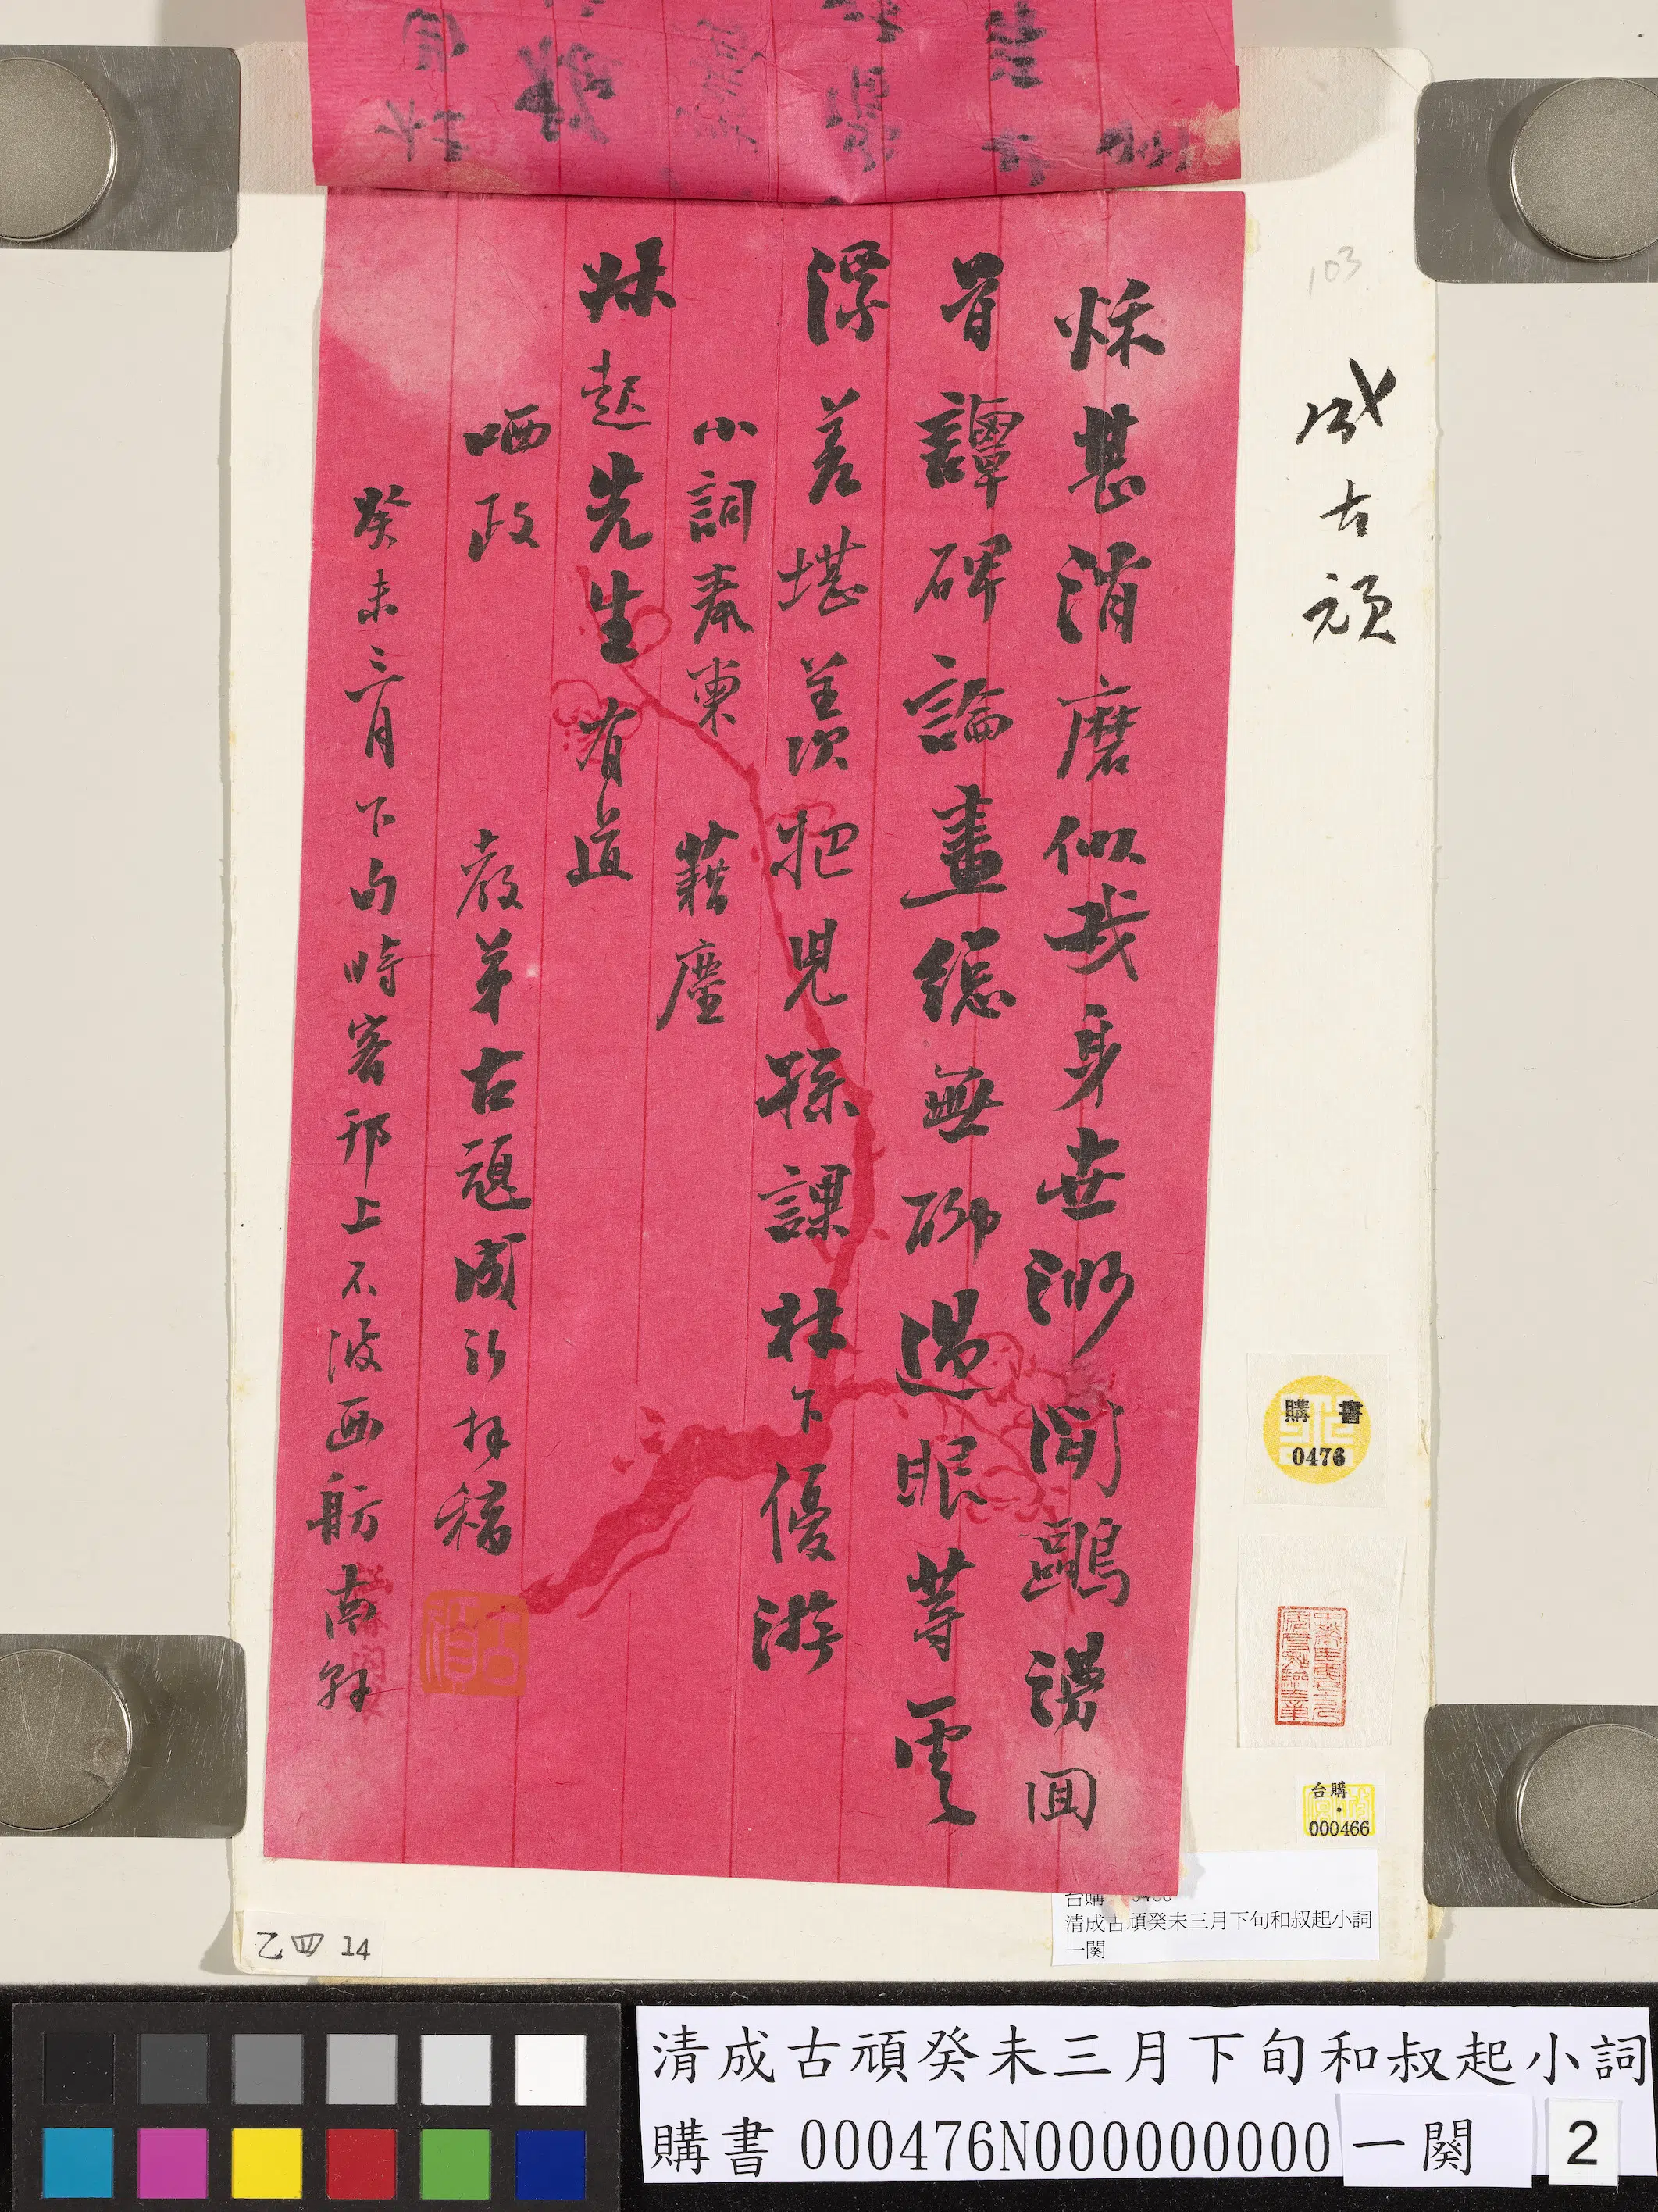 103
成古頑
秌甚消磨似我身世沙閒鷗澷回
首譚碑論畫總無聊過眼等雲
漂差堪羡次把兒孫課林下優游
小詞奉柬 藉塵
尗起先生有道
哂政
教弟古頑成沂拜稿
癸未三月下旬時客邗上不波画舫
古
購書
0476
台購
000466
台購
清成古頑癸未三月下旬和叔起小詞
一闋
乙四 14
清成古頑癸未三月下旬和叔起小詞
購書 000476N000000000 一闋 2